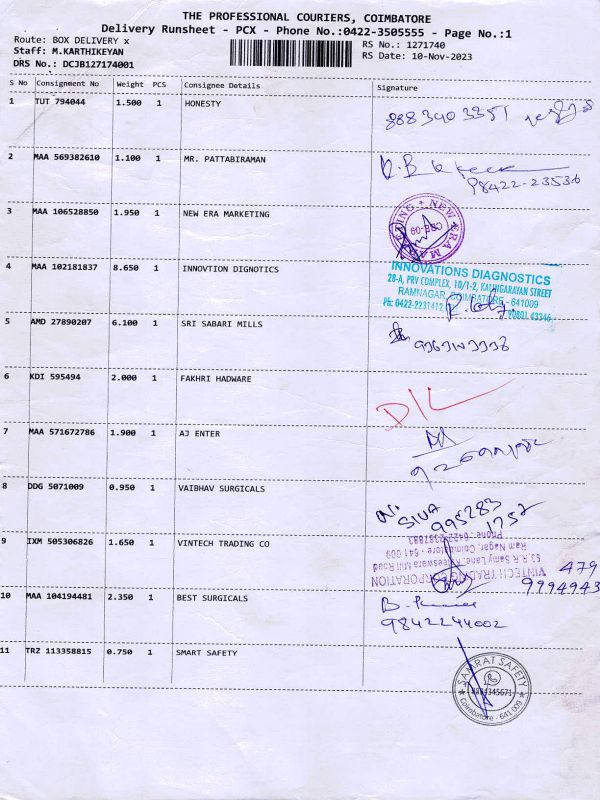 THE PROFESSIONAL COURIERS, COIMBATORE
Delivery Runsheet - PCX - Phone No.:0422-3505555 - Page No.:1
Route: BOX DELIVERY x
RS No.: 1271740
Staff: M.KARTHIKEYAN
RS Date: 10-Nov-2023
DRS No.: DCJB127174001
S No Consignment No Weight PCS Consignee Details Signature
1 TUT 794044 1.500 1 HONESTY
8883403351
2 MAA 569382610 1.100 1 MR. PATTABIRAMAN
98422-23536
3 MAA 106528850 1.950 1 NEW ERA MARKETING
NEW ERA MARKETING
CBE-09
4 MAA 102181837 8.650 1 INNOVTION DIGNOTICS
INNOVATIONS DIAGNOSTICS
28-A, PRV COMPLEX, 10/1-2, KALINGARAYAN STREET
RAMNAGAR, COIMBATORE - 641009
Ph: 0422-2231412, 90801 43346
5 AMD 27890207 6.100 1 SRI SABARI MILLS
6 KDI 595494 2.000 1 FAKHRI HADWARE
D/L
7 MAA 571672786 1.900 1 AJ ENTER
8 DDG 5071009 0.950 1 VAIBHAV SURGICALS
N. SIVA
995283
1757
9 IXM 505306826 1.650 1 VINTECH TRADING CO
VINTECH TRADING CORPORATION
Ram Nagar, Coimbatore - 641 009
Phone : 0422-2387883
479
9994943
10 MAA 104194481 2.350 1 BEST SURGICALS
9842244002
11 TRZ 113358815 0.750 1 SMART SAFETY
SAMRAT SAFETY
Coimbatore - 641 009